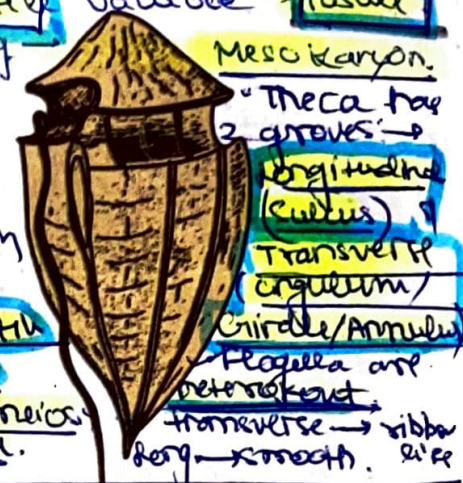 variable
Mesokaryon.
Theca has
2 grooves →
Longitudinal
(Sulcus) &
Transverse
(cingulum)
Girdle/Annulus
flagella are
heterokont.
transverse → ribbon
long → smooth. like